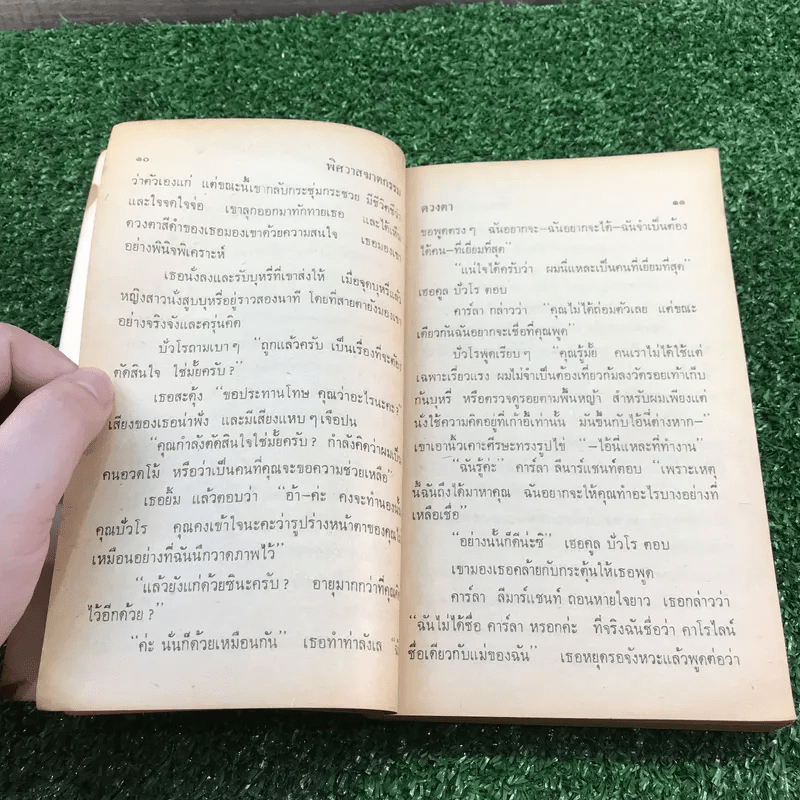 ๑๐
พิศวาสฆาตกรรม
ว่าตัวเองแก่ แต่ขณะนี้เขากลับกระชุ่มกระชวย มีชีวิตชีวา
และใจจดใจจ่อ เขาลุกออกมาทักทายเธอ และได้เห็น
ดวงตาสีดำของเธอมองเขาด้วยความสนใจ เธอมองเขา
อย่างพินิจพิเคราะห์
เธอนั่งลงและรับบุหรี่ที่เขาส่งให้ เมื่อจุดบุหรี่แล้ว
หญิงสาวนั่งสูบบุหรี่อยู่ราวสองนาที โดยที่สายตายังมองเขา
อย่างจริงจังและครุ่นคิด
ปัวโรถามเบา ๆ “ถูกแล้วครับ เป็นเรื่องที่จะต้อง
ตัดสินใจ ใช่มั้ยครับ?”
เธอสะดุ้ง “ขอประทานโทษ คุณว่าอะไรนะคะ?”
เสียงของเธอน่าฟัง และมีเสียงแหบ ๆ เจือปน
“คุณกำลังตัดสินใจใช่มั้ยครับ? กำลังคิดว่าผมเป็น
คนอวดโม้ หรือว่าเป็นคนที่คุณจะขอความช่วยเหลือ”
เธอยิ้ม แล้วตอบว่า “อ้า–ค่ะ คงจะทำนองนั้น
คุณปัวโร คุณคงเข้าใจนะคะว่ารูปร่างหน้าตาของคุณ
เหมือนอย่างที่ฉันนึกวาดภาพไว้”
“แล้วยังแก่ด้วยซินะครับ? อายุมากกว่าที่คุณ
ไว้อีกด้วย?”
“ค่ะ นั่นก็ด้วยเหมือนกัน” เธอทำท่าลังเล
ดวงตา
๑๑
ขอพูดตรง ๆ ฉันอยากจะ–ฉันอยากจะได้–ฉันจำเป็นต้อง
ได้คน–ที่เยี่ยมที่สุด”
“แน่ใจได้ครับว่า ผมนี่แหละเป็นคนที่เยี่ยมที่สุด”
เฮอคูล ปัวโร ตอบ
คาร์ลา กล่าวว่า “คุณไม่ได้ถ่อมตัวเลย แต่ขณะ
เดียวกันฉันอยากจะเชื่อที่คุณพูด”
ปัวโรพูดเรียบ ๆ “คุณรู้มั้ย คนเราไม่ได้ใช้แต่
เฉพาะเรี่ยวแรง ผมไม่จำเป็นต้องเที่ยวก้มลงวัดรอยเท้าเก็บ
ก้นบุหรี่ หรือตรวจดูรอยตามพื้นหญ้า สำหรับผมเพียงแต่
นั่งใช้ความคิดอยู่ที่เก้าอี้เท่านั้น มันขึ้นกับไอ้นี่ต่างหาก–”
เขาเอานิ้วเคาะศีรษะทรงรูปไข่ “–ไอ้นี่แหละที่ทำงาน”
“ฉันรู้ค่ะ” คาร์ลา ลีมาร์แชนท์ตอบ “เพราะเหตุ
นี้ฉันถึงได้มาหาคุณ ฉันอยากจะให้คุณทำอะไรบางอย่างที่
เหลือเชื่อ”
“อย่างนั้นก็ดีน่ะซิ” เฮอคูล ปัวโร ตอบ
เขามองเธอคล้ายกับกระตุ้นให้เธอพูด
คาร์ลา ลีมาร์แชนท์ ถอนหายใจยาว เธอกล่าวว่า
“ฉันไม่ได้ชื่อ คาร์ลา หรอกค่ะ ที่จริงฉันชื่อว่า คาโรไลน์
ชื่อเดียวกับแม่ของฉัน” เธอหยุดรอจังหวะแล้วพูดต่อว่า